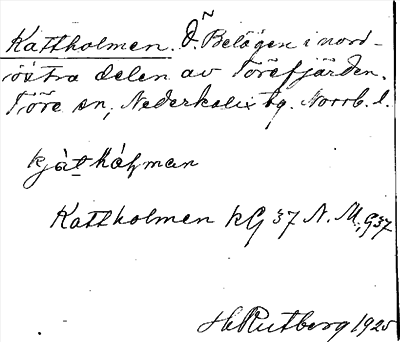 Kattholmen. Ö. Belägen i nord-
östra delen av Törefjärden.
Töre sn, Nederkalix tg. Norrb. l.
kjàt hólman
Kattholmen KG 37 N. M., G37
H. Rutberg 1925